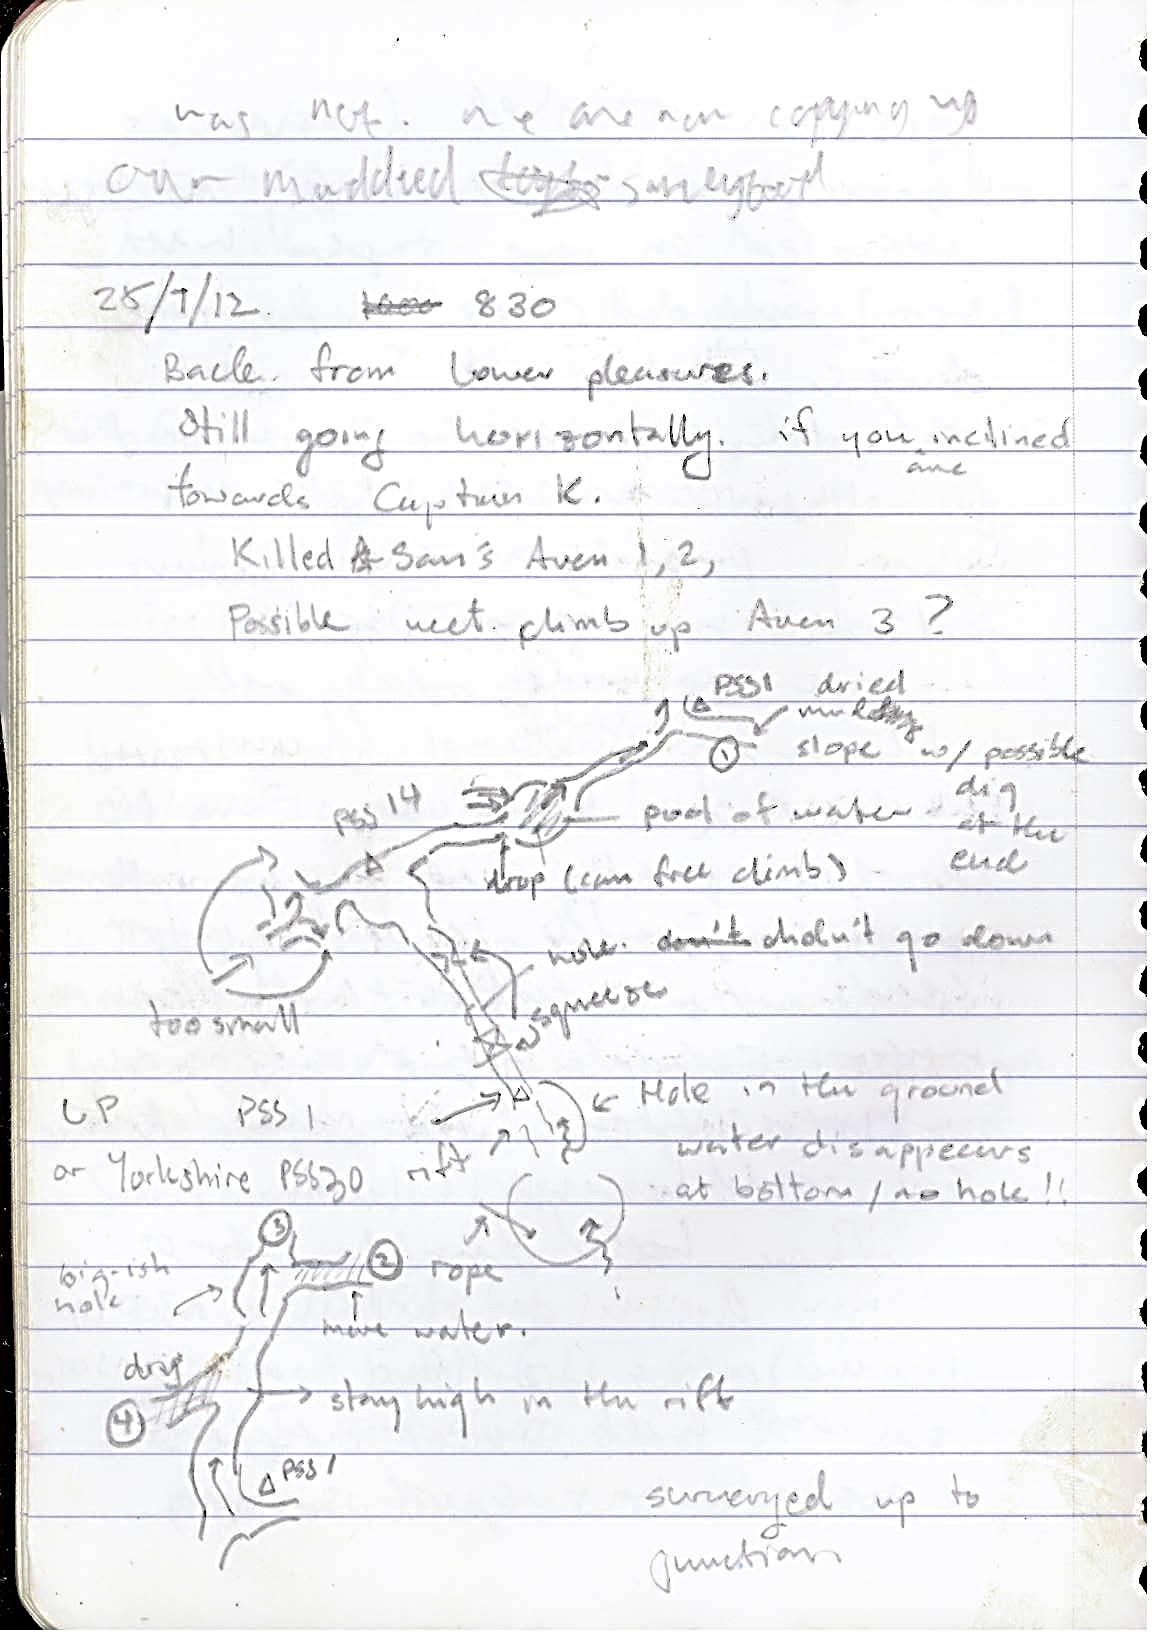 was not. we are now copying up
our muddied survey
25/7/12. 830
Back from Lower pleasures.
Still going horizontally. if you are inclined
towards Captain K.
Killed Sam's Aven 1, 2,
Possible next climb up Aven 3 ?
PSS1 dried
muddy
① slope w/ possible
dig
at the
end
PSS 14
pool of water
drop (can free climb)
hole. didn't go down
squeeze
too small
Hole in the ground
water disappears
at bottom / no hole !!
UP PSS 1
or Yorkshire PSS30 rift
rope
③
②
big-ish
hole
more water.
dig
④
stay high in the rift
PSS 1
surveyed up to
junction